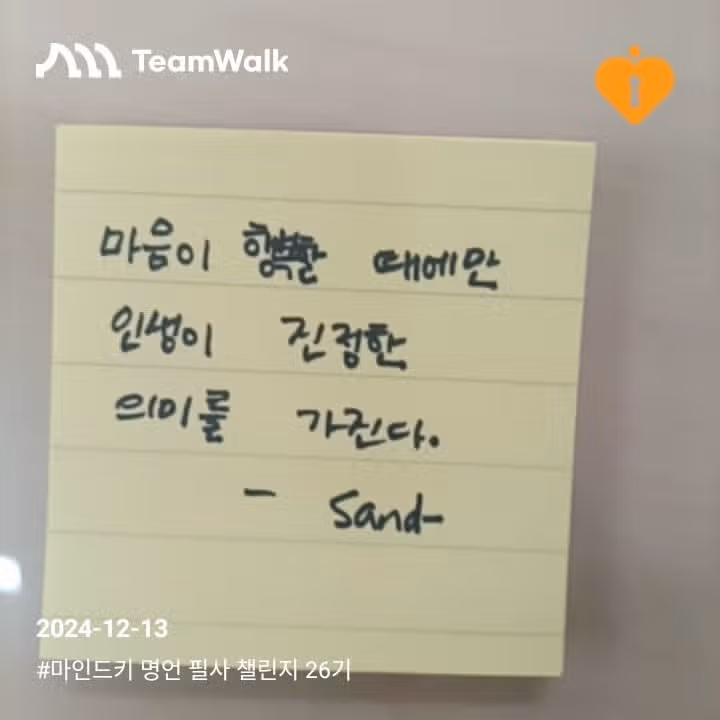 TeamWalk
마음이 행복할 때에만
인생이 진정한
의미를 가진다.
- Sand-
2024-12-13
#마인드키 명언 필사 챌린지 26기